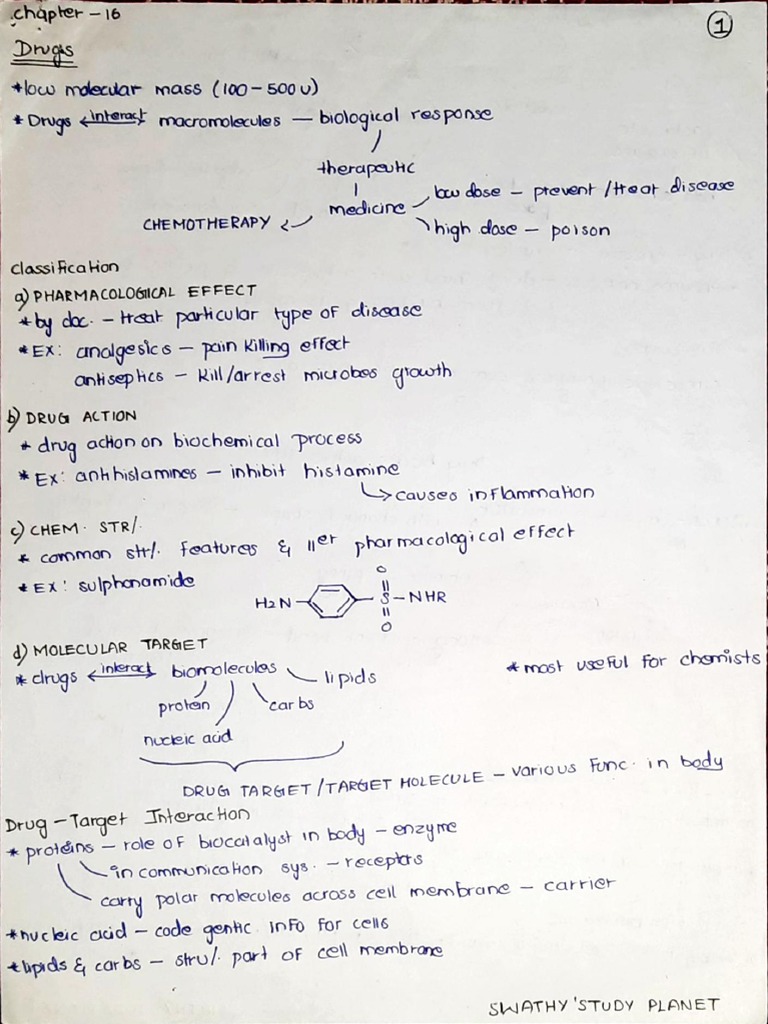 Chapter - 16
1
Drugs
* low molecular mass (100 - 500 u)
* Drugs <-interact-> macromolecules — biological response
therapeutic
medicine
low dose - prevent / treat disease
high dose - poison
CHEMOTHERAPY
Classification
a) PHARMACOLOGICAL EFFECT
* by doc. - treat particular type of disease
* EX: analgesics - pain killing effect
antiseptics - kill/arrest microbes growth
b) DRUG ACTION
* drug action on biochemical process
* Ex: antihistamines - inhibit histamine
causes inflammation
c) CHEM. STR/.
* common str/. features & ller pharmacological effect
* EX: sulphonamide
O
H2N S - NHR
O
d) MOLECULAR TARGET
* drugs <-interact-> biomolecules lipids * most useful for chemists
protein carbs
nucleic acid
DRUG TARGET / TARGET MOLECULE - various func. in body
Drug - Target Interaction
* proteins - role of biocatalyst in body - enzyme
in communication sys. - receptors
carry polar molecules across cell membrane - carrier
* nucleic acid - code gentic info for cells
* lipids & carbs - stru/. part of cell membrane
SWATHY'STUDY PLANET